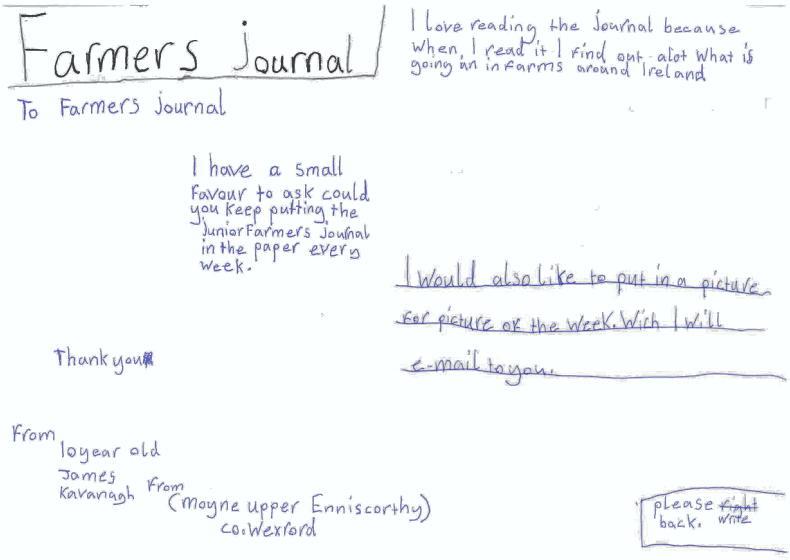 Farmers Journal
To Farmers journal
I have a small
favour to ask could
you keep putting the
Junior Farmers Journal
in the paper every
week.
Thank you
From
10 year old
James
Kavanagh From
(Moyne upper Enniscorthy)
co. Wexford
I love reading the Journal because
when, I read it I find out alot what is
going on in farms around Ireland
I would also like to put in a picture
for picture of the week. Wich I will
e-mail to you.
please right
back. write